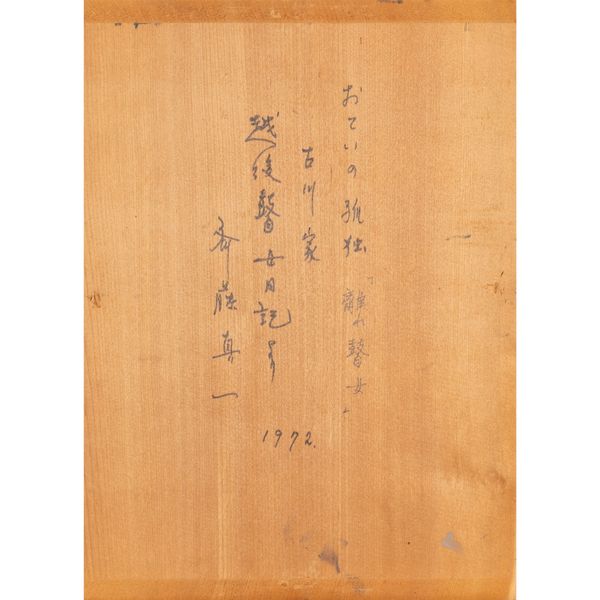 おていの孤独「離れ瞽女」
古川家
越後瞽女日記より
斎藤真一
1972.